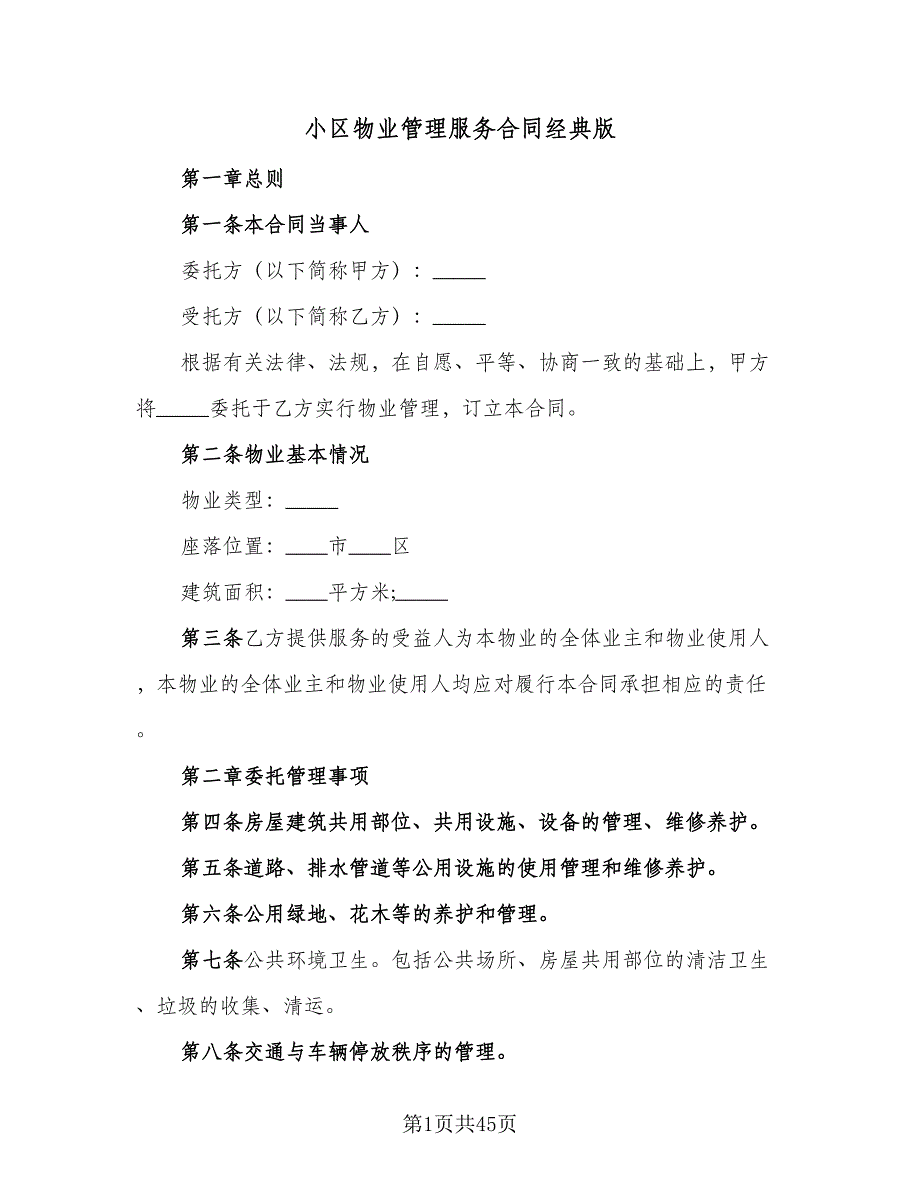 小区物业管理服务合同经典版
第一章总则
第一条本合同当事人
委托方（以下简称甲方）：_____
受托方（以下简称乙方）：_____
根据有关法律、法规，在自愿、平等、协商一致的基础上，甲方
将_____委托于乙方实行物业管理，订立本合同。
第二条物业基本情况
物业类型：_____
座落位置：____市____区
建筑面积：____平方米;_____
第三条乙方提供服务的受益人为本物业的全体业主和物业使用人
，本物业的全体业主和物业使用人均应对履行本合同承担相应的责任
。
第二章委托管理事项
第四条房屋建筑共用部位、共用设施、设备的管理、维修养护。
第五条道路、排水管道等公用设施的使用管理和维修养护。
第六条公用绿地、花木等的养护和管理。
第七条公共环境卫生。包括公共场所、房屋共用部位的清洁卫生
、垃圾的收集、清运。
第八条交通与车辆停放秩序的管理。
第1页共45页